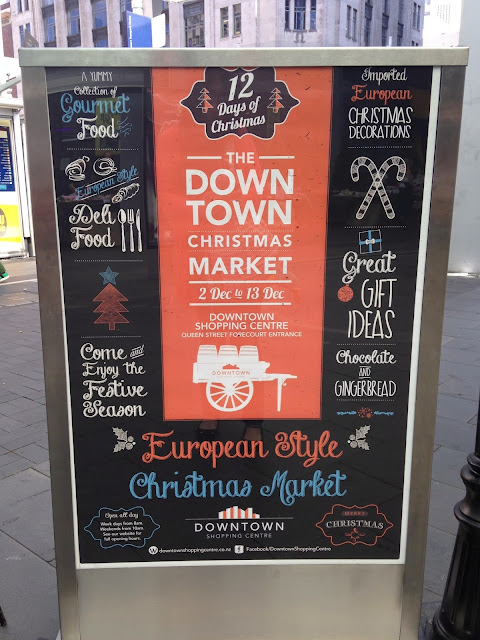 A YUMMY
Collection of
Gourmet
Food
European Style
Deli
Food
Come and
Enjoy the
Festive
Season
12
Days of
Christmas
THE
DOWN
TOWN
CHRISTMAS
MARKET
2 Dec to 13 Dec
DOWNTOWN
SHOPPING CENTRE
QUEEN STREET FORECOURT ENTRANCE
DOWNTOWN
Imported
European
CHRISTMAS
DECORATIONS
Great
GIFT
IDEAS
Chocolate
AND
GINGERBREAD
European Style
Christmas Market
Open all day
Week days from 8am.
Weekends from 10am.
See our website for
full opening hours.
DOWNTOWN
SHOPPING CENTRE
MERRY
CHRISTMAS
downtownshoppingcentre.co.nz
Facebook/DowntownShoppingCentre